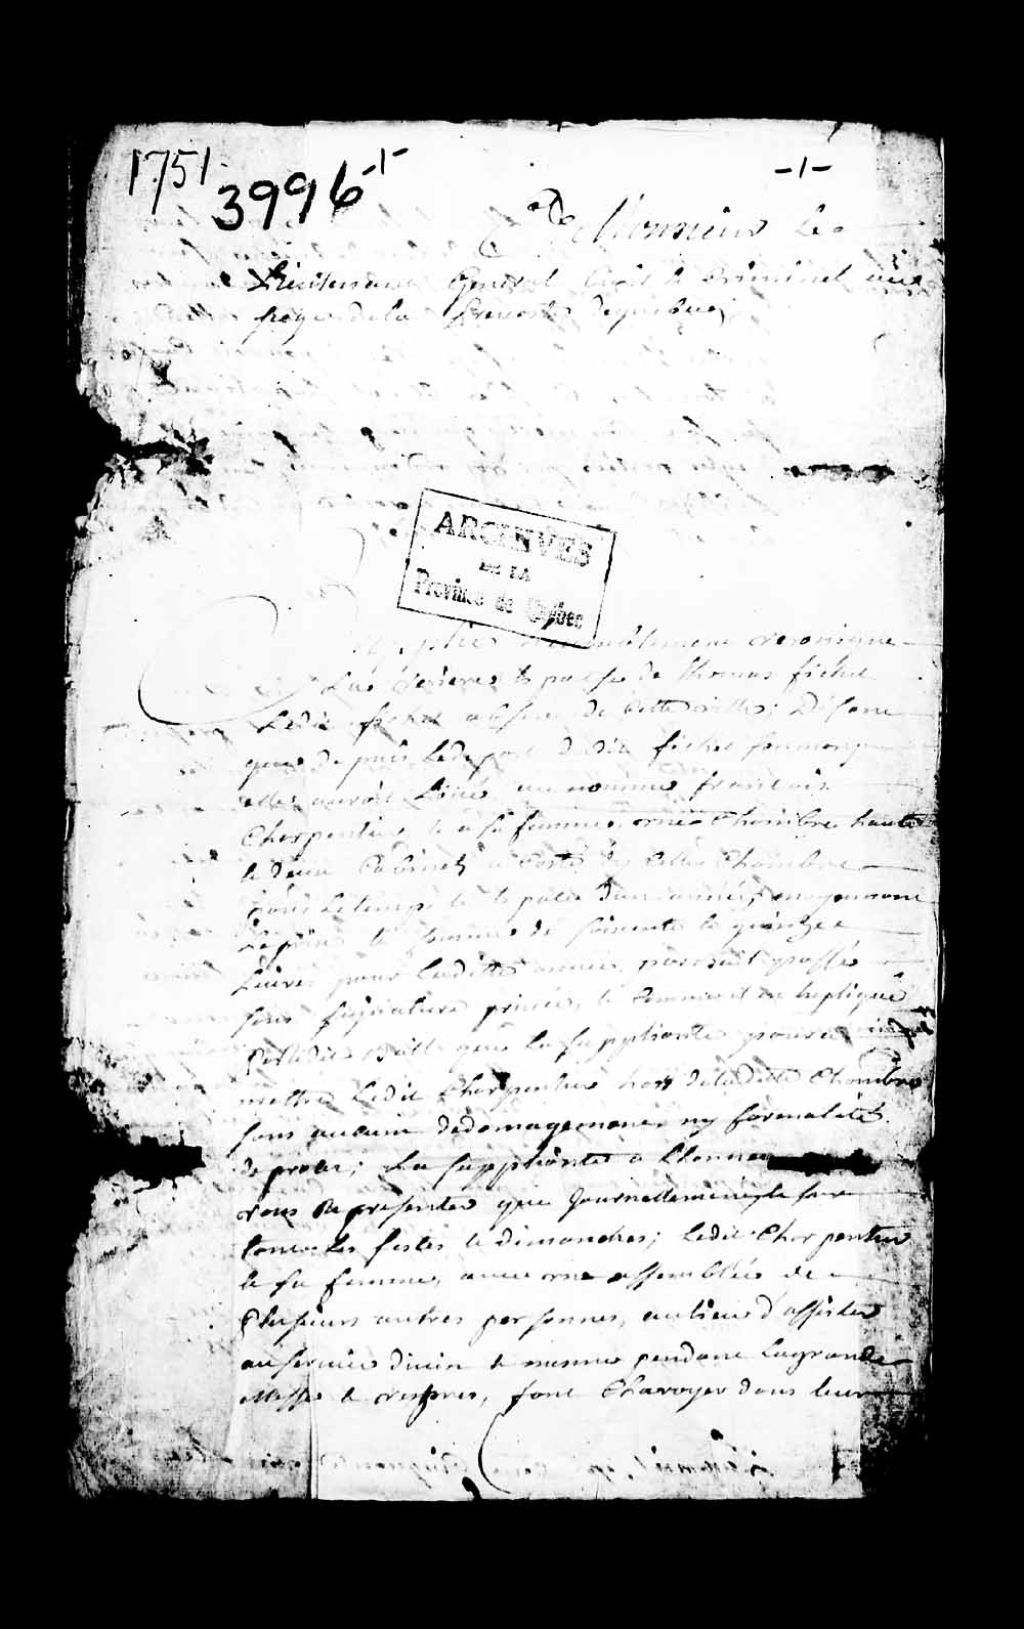 1751
3996 -1-
-1-
A Monsieur Le
Lieutenant General Civil & Criminel au
siege de la Prevosté de quebec;
ARCHIVES
DE LA
Province de Québec
Supplie humblement veronique
epouse de thomas fichet
Ledit absent de Cette ville; Disant
que Depuis Ledepart dudit fichet son mary
elle auroit Loüé, au nommé francois
Charpentier, & a sa femme, une Chambre haute
& deux Cabinets a Costé de Cette Chambre
pour Le temps & Espace D'une année, moyennant
La somme de soixante & quinze
Livres pour Laditte année, par Bail passé
sous signature privée, & Comme il est Expliqué
Par ledit Bail que La suppliante poura
mettre Ledit Charpentier hors de laditte Chambre
sans aucun dedomagement ny formalités
de procès; La suppliante a Lhonneur
vous Representer que Journellement, & sur
toutes Les festes & dimanches; Ledit Charpentier
& sa femme, avec une assemblée de
Plusieurs autres personnes, au lieu d'assister
au service divin & mesme pendant La grande
Messe & vespres, font Charoyer dans leur